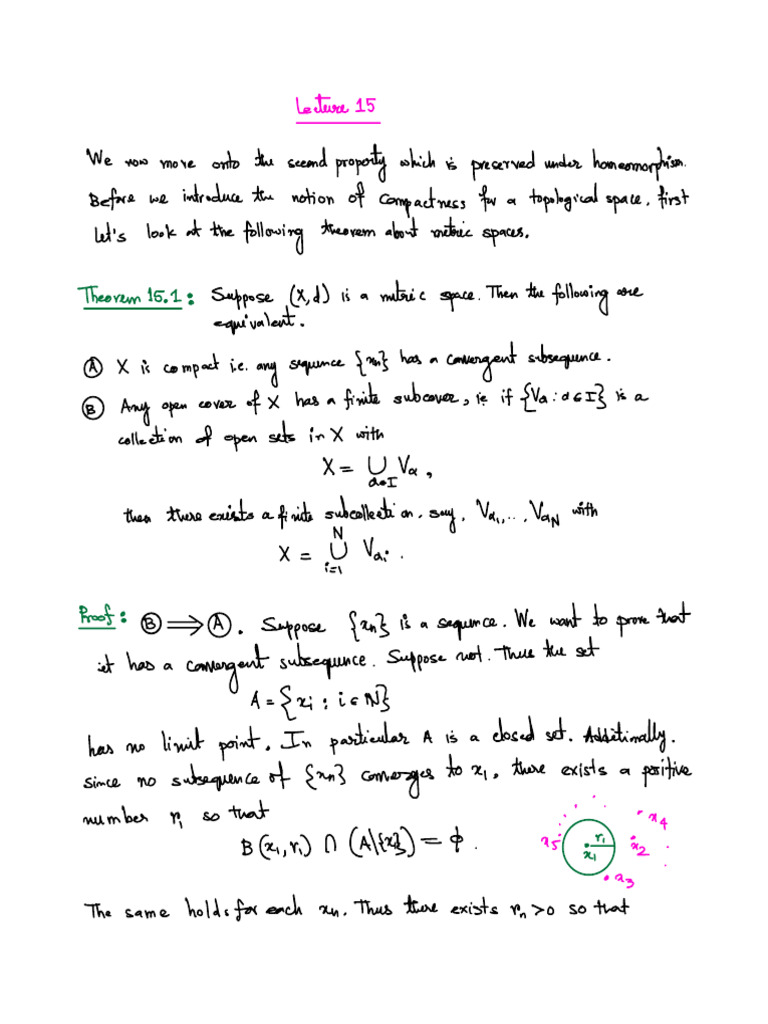 Lecture 15
We now move onto the second property which is preserved under homeomorphism.
Before we introduce the notion of compactness for a topological space, first
let's look at the following theorem about metric spaces.
Theorem 15.1: Suppose (X,d) is a metric space. Then the following are
equivalent.
Ⓐ X is compact i.e. any sequence {xn} has a convergent subsequence.
Ⓑ Any open cover of X has a finite subcover, i.e. if {Vα : α∈I} is a
collection of open sets in X with
X = ∪_{α∈I} Vα,
then there exists a finite subcollection, say, Vα₁, .., VαN with
X = ∪_{i=1}^{N} Vαi.
Proof: Ⓑ ⟹ Ⓐ. Suppose {xn} is a sequence. We want to prove that
it has a convergent subsequence. Suppose not. Thus the set
A = {xi : i∈ℕ}
has no limit point. In particular A is a closed set. Additinally.
since no subsequence of {xn} converges to x₁, there exists a positive
number r₁ so that
B(x₁, r₁) ∩ (A\{x₁}) = ϕ.
x₅ r₁ x₁ x₄ x₂ x₃
The same holds for each xn. Thus there exists rn>0 so that